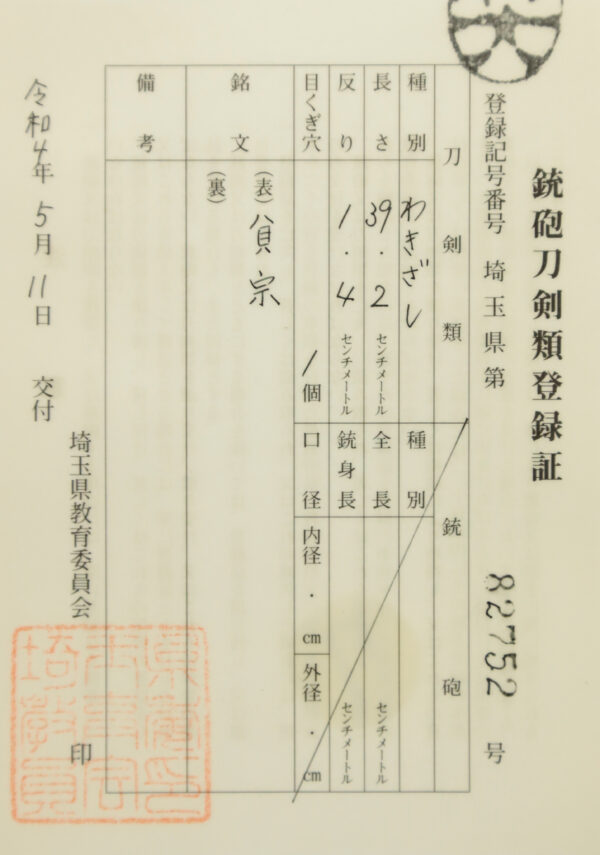 銃砲刀剣類登録証
登録記号番号 埼玉県第 82752 号
刀剣類
銃砲
種別 わきざし
種別
長さ 39.2 センチメートル
全長 センチメートル
反り 1.4 センチメートル
銃身長 センチメートル
目くぎ穴 1個
口径 内径 ・ cm 外径 ・ cm
銘文 (表) 貟宗
(裏)
備考
令和4年5月11日 交付
埼玉県教育委員会 印